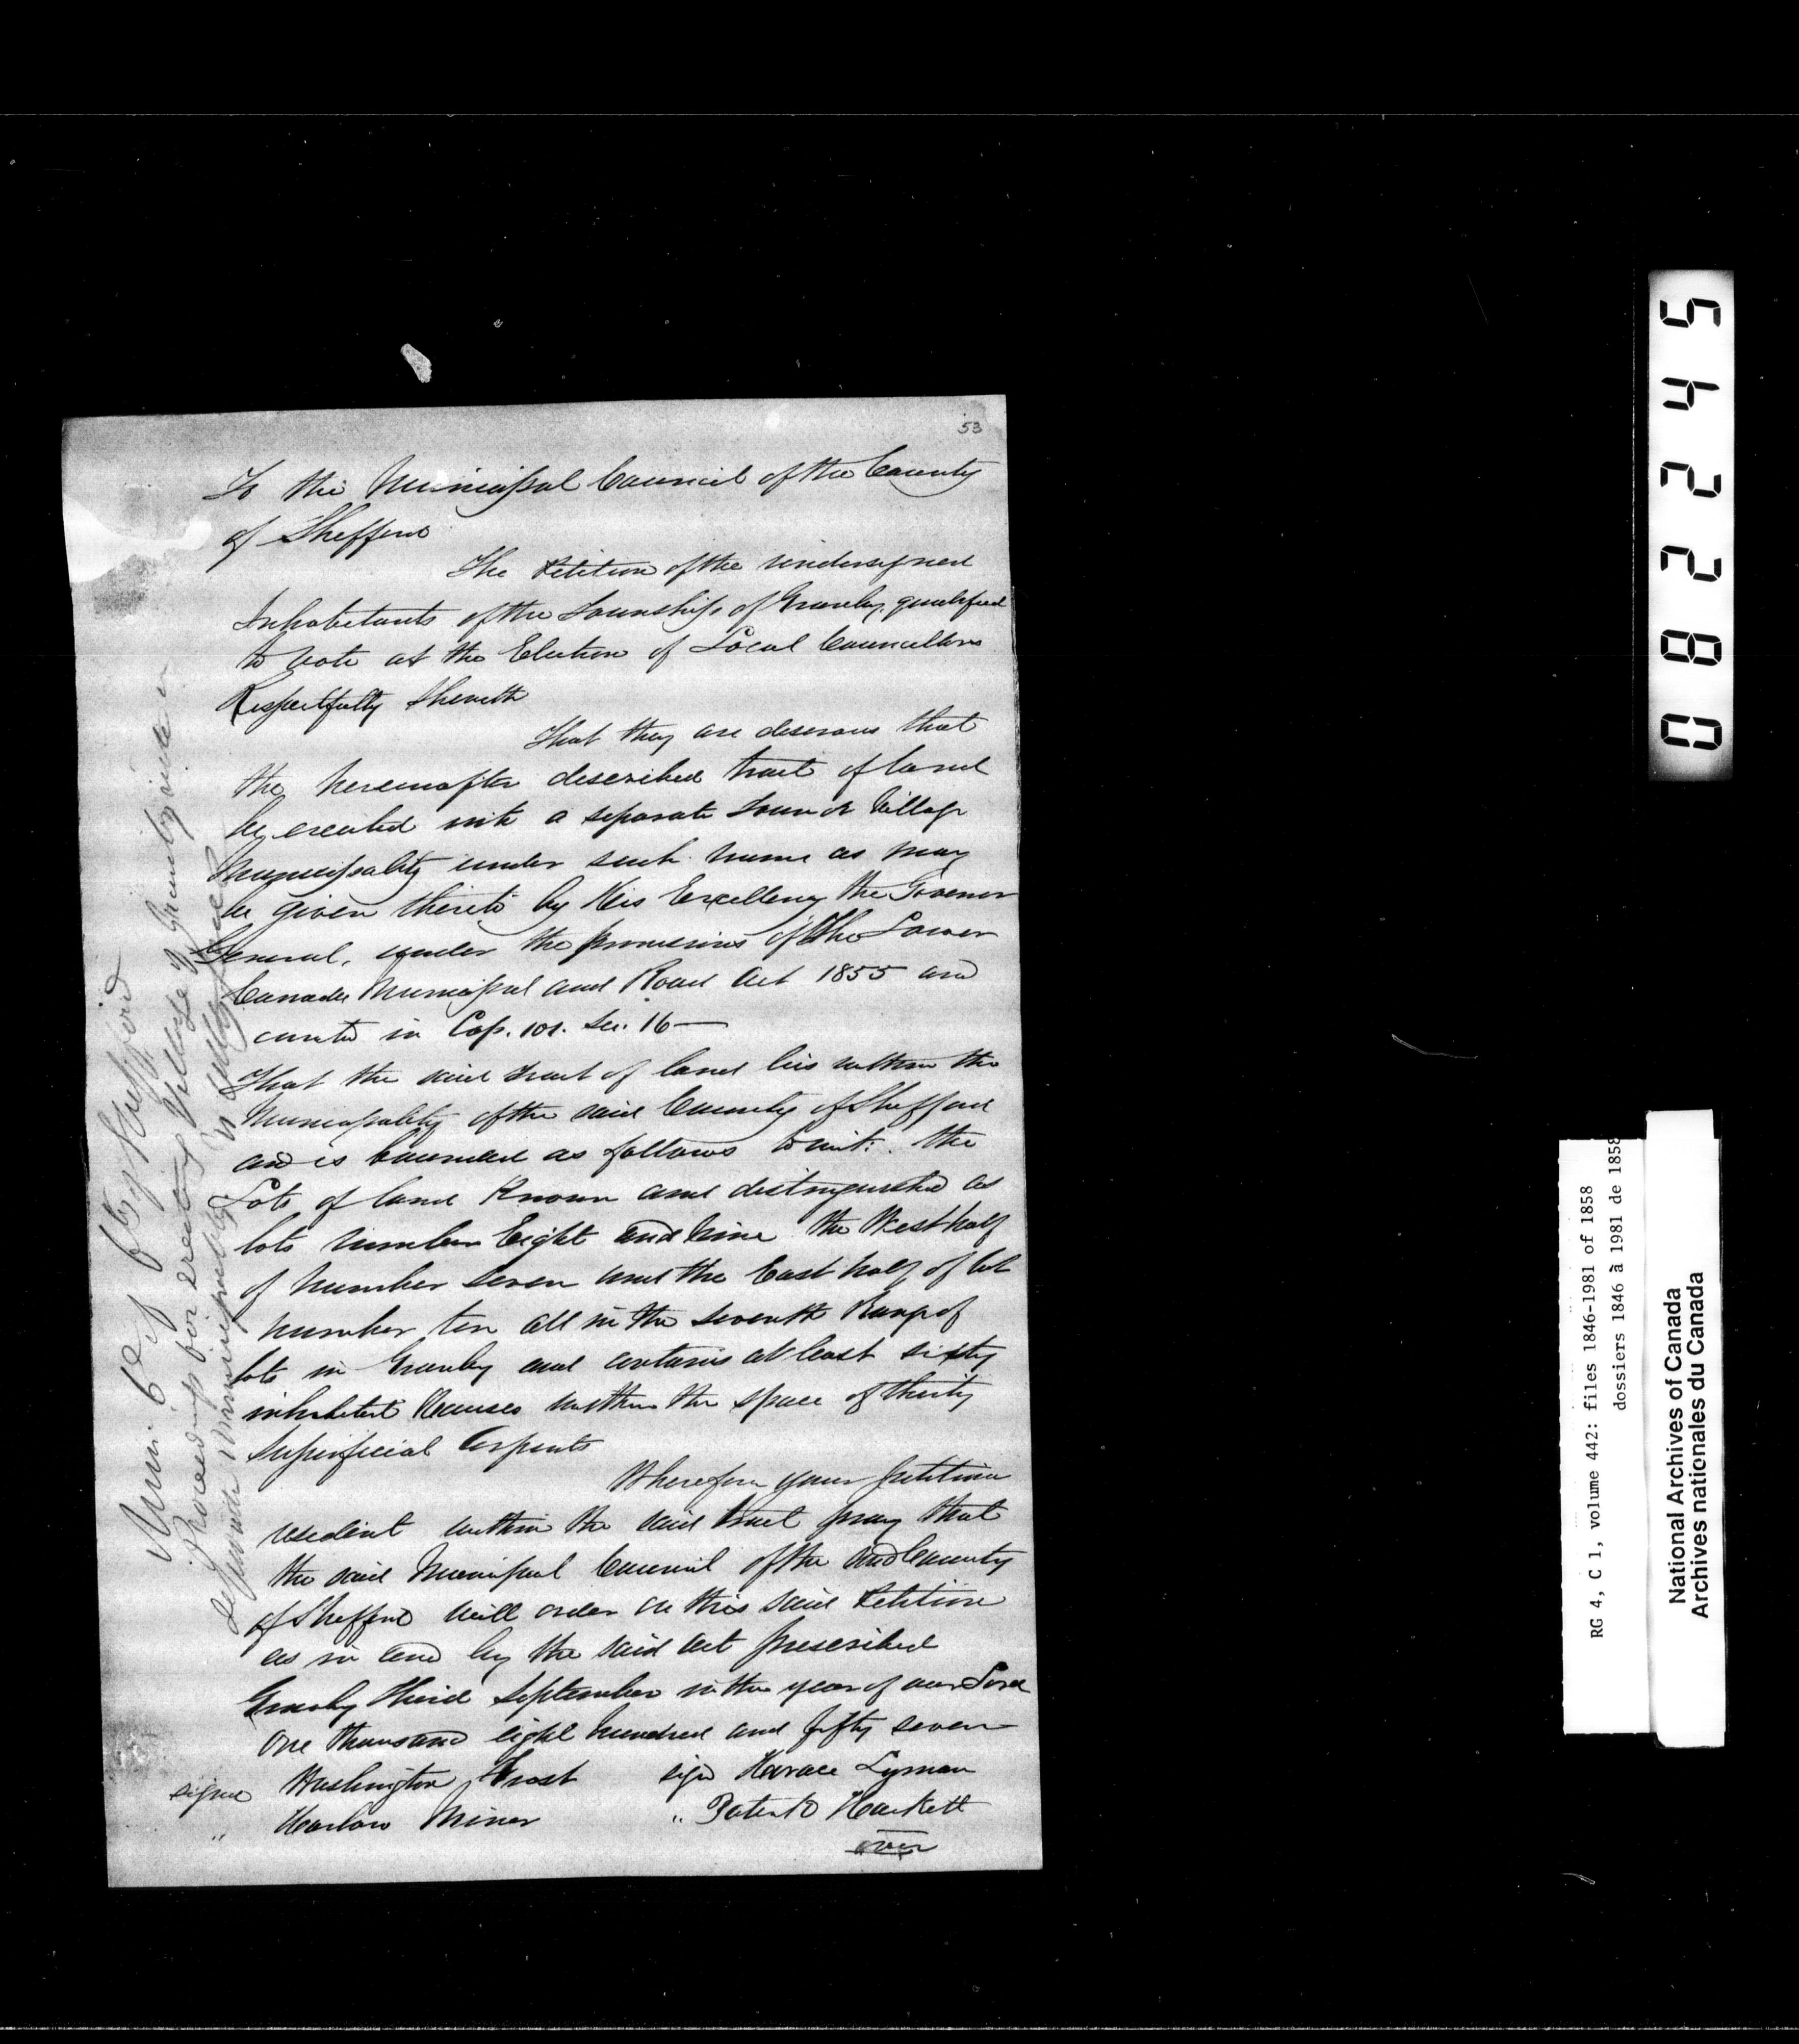 53
To the Municipal Council of the County
of Shefford
The Petition of the undersigned
Inhabitants of the Township of Granby, qualified
to vote at the Election of Local Councillors
Respectfully Sheweth
That they are desirous that
the hereinafter described tract of land
be erected into a separate Town or Village
Municipality under such name as may
be given thereto by His Excellency the Governor
General, under the provisions of the Lower
Canada Municipal and Road Act 1855 and
in Cap. 101. Sec. 16 —
That the said tract of land lies within the
Municipality of the said County of Shefford
and is bounded as follows to wit: the
Lots of land Known and distinguished as
lots number Eight and Nine the West half
of Number Seven and the East half of lot
number ten all in the seventh Range of
lots in Granby and contains at least sixty
inhabited Houses within the space of thirty
Superficial Arpents
Wherefore your petition
resident within the said tract pray that
the said Municipal Council of the said County
of Shefford will order on this said Petition
as in and by the said Act prescribed
Granby third September in the year of our Lord
One thousand eight hundred and fifty seven
signed Washington Frost sigd Horace Lyman
" Harlow Miner " Patent Hackett
over
Muni. Ce of Cty Shefford
Proceedings for erecting Village of Granby into a
separate Municipality
082245
RG 4, C 1, volume 442: files 1846-1981 of 1858
dossiers 1846 à 1981 de 1858
National Archives of Canada
Archives nationales du Canada